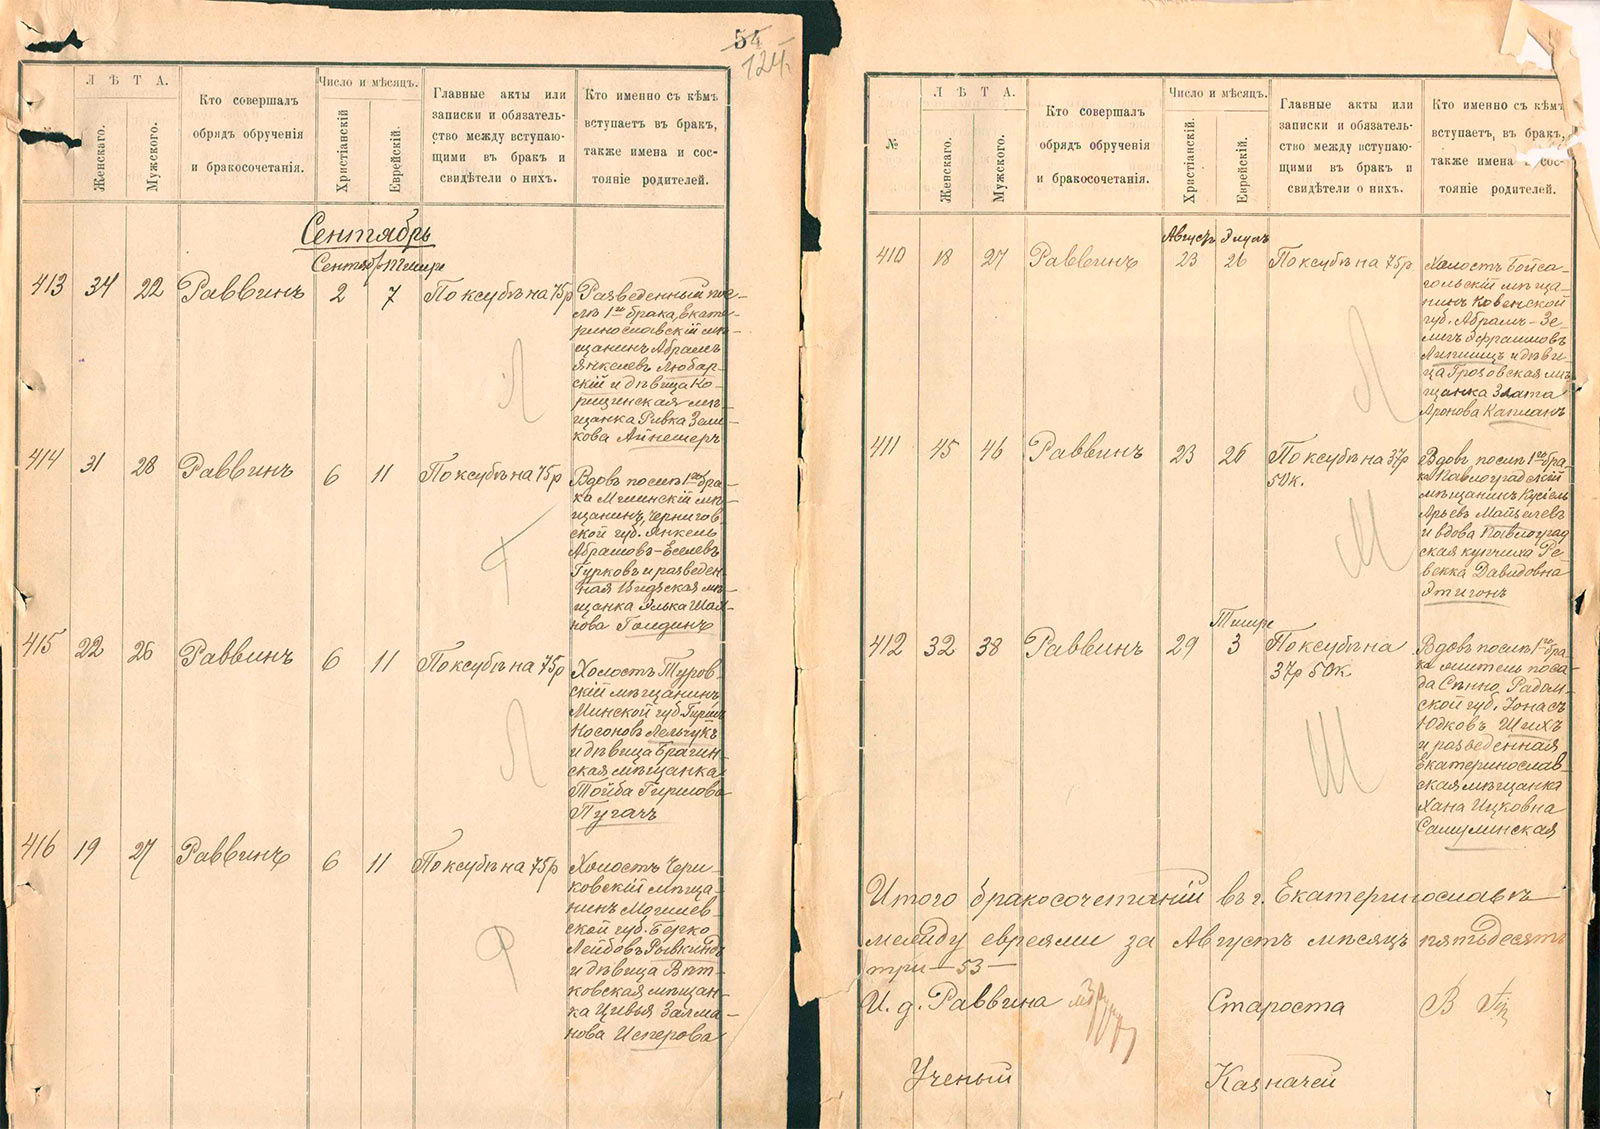 54
124
Л Ѣ Т А.
Женскаго.
Мужского.
Кто совершалъ
обрядъ обрученія
и бракосочетанія.
Число и мѣсяцъ.
Христіанскій
Еврейскій.
Главные акты или
записки и обязатель-
ство между вступаю-
щими въ бракъ и
свидѣтели о нихъ.
Кто именно съ кѣмъ
вступаетъ въ бракъ,
также имена и сос-
тояніе родителей.
Сентябрь
Сентябр Тишре
413 34 22 Раввинъ 2 7 По ксубѣ на 75р
Разведенный пос-
лѣ 1го брака, екате-
ринославскій мѣ-
щанинъ Абрамъ
Янкелевъ Любар-
скій и дѣвица Ко-
рицинская мѣ-
щанка Ривка Зал-
кова Айнемеръ
Л
414 31 28 Раввинъ 6 11 По ксубѣ на 75р
Вдовъ послѣ 1го бра-
ка Мглинскій мѣ-
щанинъ, Чернигов-
ской губ. Янкель
Абрамовъ-Еселевъ
Гурковъ и разведен-
ная Видзская мѣ-
щанка Элька Шал-
мова Голдинъ
Г
415 22 26 Раввинъ 6 11 По ксубѣ на 75р
Холостъ Туров-
скій мѣщанинъ,
Минской губ. Гирш
Носоновъ Лельчукъ
и дѣвица Брагин-
ская мѣщанка
Тойба Гиршова
Пугачъ
Л
416 19 27 Раввинъ 6 11 По ксубѣ на 75р
Холостъ Чери-
ковскій мѣща-
нинъ Могилев-
ской губ. Берко
Лейбовъ Рывкинъ
и дѣвица Вѣт-
ковская мѣщан-
ка Цивья Залма-
нова Исперова
Р
№
Л Ѣ Т А.
Женскаго.
Мужского.
Кто совершалъ
обрядъ обрученія
и бракосочетанія.
Число и мѣсяцъ.
Христіанскій.
Еврейскій.
Главные акты или
записки и обязатель-
ство между вступаю-
щими въ бракъ и
свидѣтели о нихъ.
Кто именно съ кѣмъ
вступаетъ, въ бракъ,
также имена и сос-
тояніе родителей.
Августъ Элулъ
410 18 27 Раввинъ 23 26 По ксубѣ на 75р.
Холостъ Бойса-
гольскій мѣща-
нинъ Ковенской
губ. Абрамъ-Зе-
ликъ Эфраимовъ
Липшицъ и дѣви-
ца Грозовская мѣ-
щанка Злата
Аронова Капланъ
Л
411 45 46 Раввинъ 23 26 По ксубѣ на 37р
50к.
Вдовъ послѣ 1го бра-
ка Павлоградскій
мѣщанинъ Кусіель
Арьевъ Майзелевъ
и вдова Павлоград
ская купчиха Ре-
векка Давидовна
Этигонъ
М
Тишре
412 32 38 Раввинъ 29 3 По ксубѣ на
37р 50к
Вдовъ послѣ 1го бра-
ка житель поса-
да Сѣнно, Радом-
ской губ. Іонасъ
Юдковъ Шихъ
и разведенная
Екатеринослав-
ская мѣщанка
Хана Ицковна
Самулинская
Ш
Итого бракосочетаній въ г. Екатеринославѣ
между евреями за Августъ мѣсяцъ пятьдесятъ
три — 53 —
И. д. Раввина Староста
Ученый Казначей